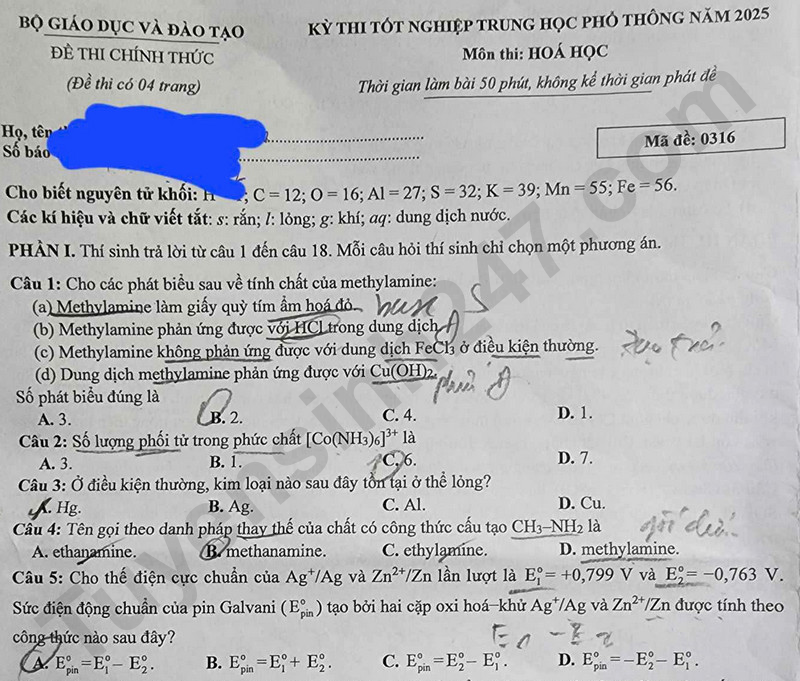 BỘ GIÁO DỤC VÀ ĐÀO TẠO
ĐỀ THI CHÍNH THỨC
(Đề thi có 04 trang)
KỲ THI TỐT NGHIỆP TRUNG HỌC PHỔ THÔNG NĂM 2025
Môn thi: HOÁ HỌC
Thời gian làm bài 50 phút, không kể thời gian phát đề
Họ, tên
Số báo
Mã đề: 0316
Cho biết nguyên tử khối: H ; C = 12; O = 16; Al = 27; S = 32; K = 39; Mn = 55; Fe = 56.
Các kí hiệu và chữ viết tắt: s: rắn; l: lỏng; g: khí; aq: dung dịch nước.
PHẦN I. Thí sinh trả lời từ câu 1 đến câu 18. Mỗi câu hỏi thí sinh chỉ chọn một phương án.
Câu 1: Cho các phát biểu sau về tính chất của methylamine:
(a) Methylamine làm giấy quỳ tím ẩm hoá đỏ. base S
(b) Methylamine phản ứng được với HCl trong dung dịch. Đ
(c) Methylamine không phản ứng được với dung dịch FeCl₃ ở điều kiện thường.
(d) Dung dịch methylamine phản ứng được với Cu(OH)₂. Đ
Số phát biểu đúng là
A. 3. B. 2. C. 4. D. 1.
Câu 2: Số lượng phối tử trong phức chất [Co(NH₃)₆]³⁺ là
A. 3. B. 1. C. 6. D. 7.
Câu 3: Ở điều kiện thường, kim loại nào sau đây tồn tại ở thể lỏng?
A. Hg. B. Ag. C. Al. D. Cu.
Câu 4: Tên gọi theo danh pháp thay thế của chất có công thức cấu tạo CH₃–NH₂ là
A. ethanamine. B. methanamine. C. ethylamine. D. methylamine.
Câu 5: Cho thế điện cực chuẩn của Ag⁺/Ag và Zn²⁺/Zn lần lượt là E°₁ = +0,799 V và E°₂ = −0,763 V.
Sức điện động chuẩn của pin Galvani (E°pin) tạo bởi hai cặp oxi hoá–khử Ag⁺/Ag và Zn²⁺/Zn được tính theo
công thức nào sau đây?
A. E°pin = E°₁ − E°₂. B. E°pin = E°₁ + E°₂. C. E°pin = E°₂ − E°₁. D. E°pin = −E°₂ − E°₁.
Tuyensinh247.com